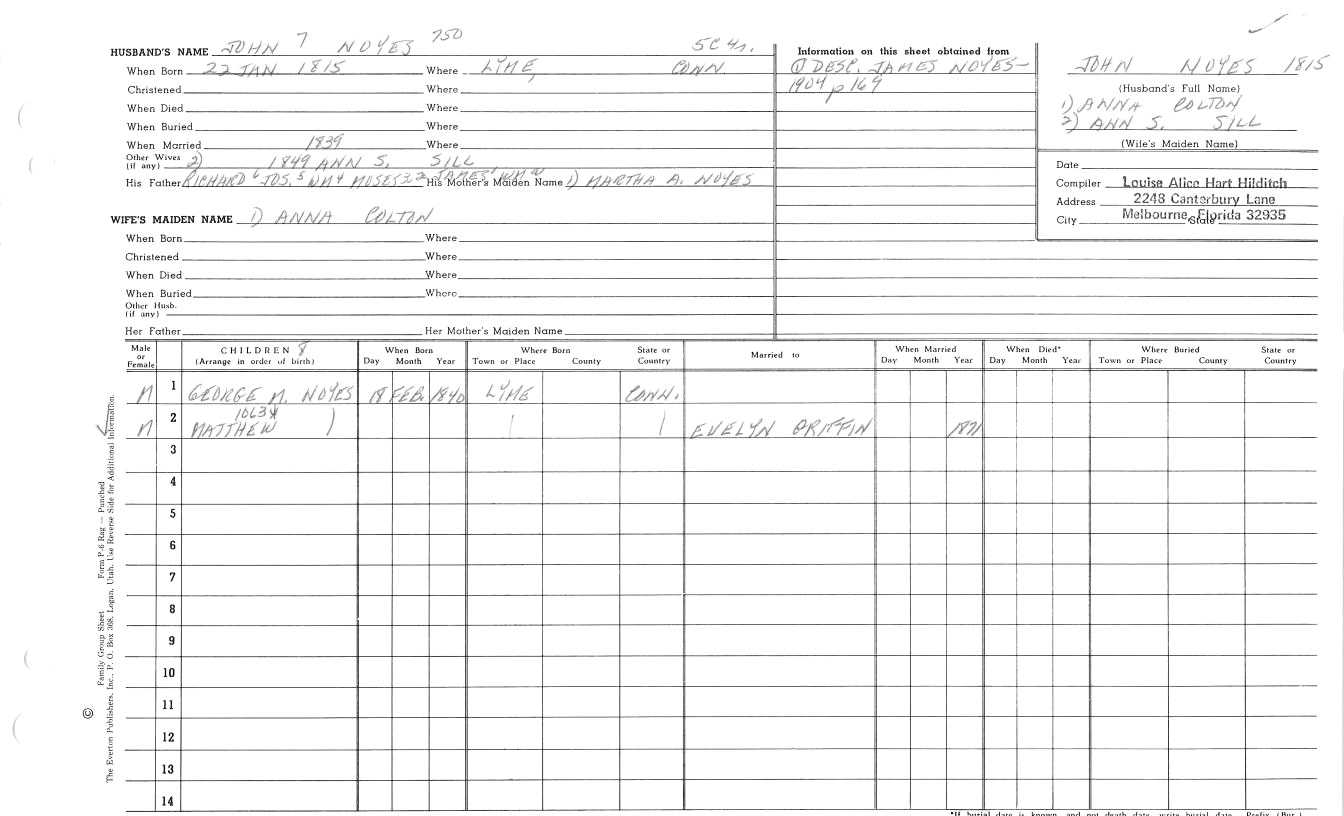 HUSBAND'S NAME JOHN 7 NOYES 750 5C 4n.
When Born 22 JAN 1815 Where LYME, CONN.
Christened Where
When Died Where
When Buried Where
When Married 1839 Where
Other Wives (if any) 2) 1849 ANN S. SILL
His Father RICHARD 6 JOS. 5 WM 4 MOSES 3 2 JAMES 1 WM His Mother's Maiden Name 1) MARTHA A. NOYES
WIFE'S MAIDEN NAME 1) ANNA COLTON
When Born Where
Christened Where
When Died Where
When Buried Where
Other Husb. (if any)
Her Father Her Mother's Maiden Name
Information on this sheet obtained from
① DESC. JAMES NOYES-
1904 p 169
JOHN NOYES 1815
(Husband's Full Name)
1) ANNA COLTON
2) ANN S. SILL
(Wife's Maiden Name)
Date
Compiler Louise Alice Hart Hilditch
Address 2248 Canterbury Lane
City Melbourne, Florida 32935
State
Male or Female CHILDREN 8 (Arrange in order of birth) When Born Day Month Year Where Born Town or Place County State or Country Married to When Married Day Month Year When Died* Day Month Year Where Buried Town or Place County State or Country
M 1 GEORGE M. NOYES 18 FEB. 1840 LYME CONN.
1063x
M 2 MATTHEW ) | | EVELYN GRIFFIN 1871
3
4
5
6
7
8
9
10
11
12
13
14
Family Group Sheet Form P-6 Rag — Punched
© The Everton Publishers, Inc., P. O. Box 368, Logan, Utah. Use Reverse Side for Additional Information.
*If burial date is known, and not death date, write burial date. Prefix (Bur.)